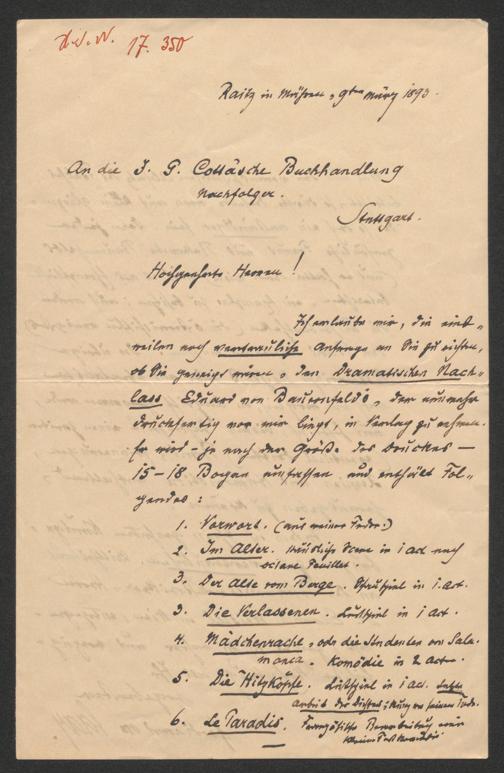 17. 350
Raitz in Mähren, 9ten März 1893.
An die J. G. Cotta'sche Buchhandlung
Nachfolger.
Stuttgart.
Hochgeehrte Herren!
Ich erlaube mir, die einst-
weilen noch vertrauliche Anfrage an Sie zu richten,
ob Sie geneigt wären, den Dramatischen Nach-
lass Eduard von Bauernfeld's, der nunmehr
druckfertig vor mir liegt, in Verlag zu nehmen.
Er wird – je nach der Größe des Druckes –
15–18 Bogen umfassen, und enthält Fol-
gendes:
1. Vorwort. (aus meiner Feder.)
2. Im Alter. Scene in 1 Act nach
Octave Feuillet.
3. Der Alte vom Berge. Schauspiel in 1 Act.
3. Die Verlassenen. Lustspiel in 1 Act.
4. Mädchenrache, oder die Studenten von Sala-
manca. Komödie in 2 Acten.
5. Die Hitzköpfe. Lustspiel in 1 Act. Letzte
Arbeit des Dichters; kurz vor seinem Tode.
6. Le Paradis. Französische Bearbeitung